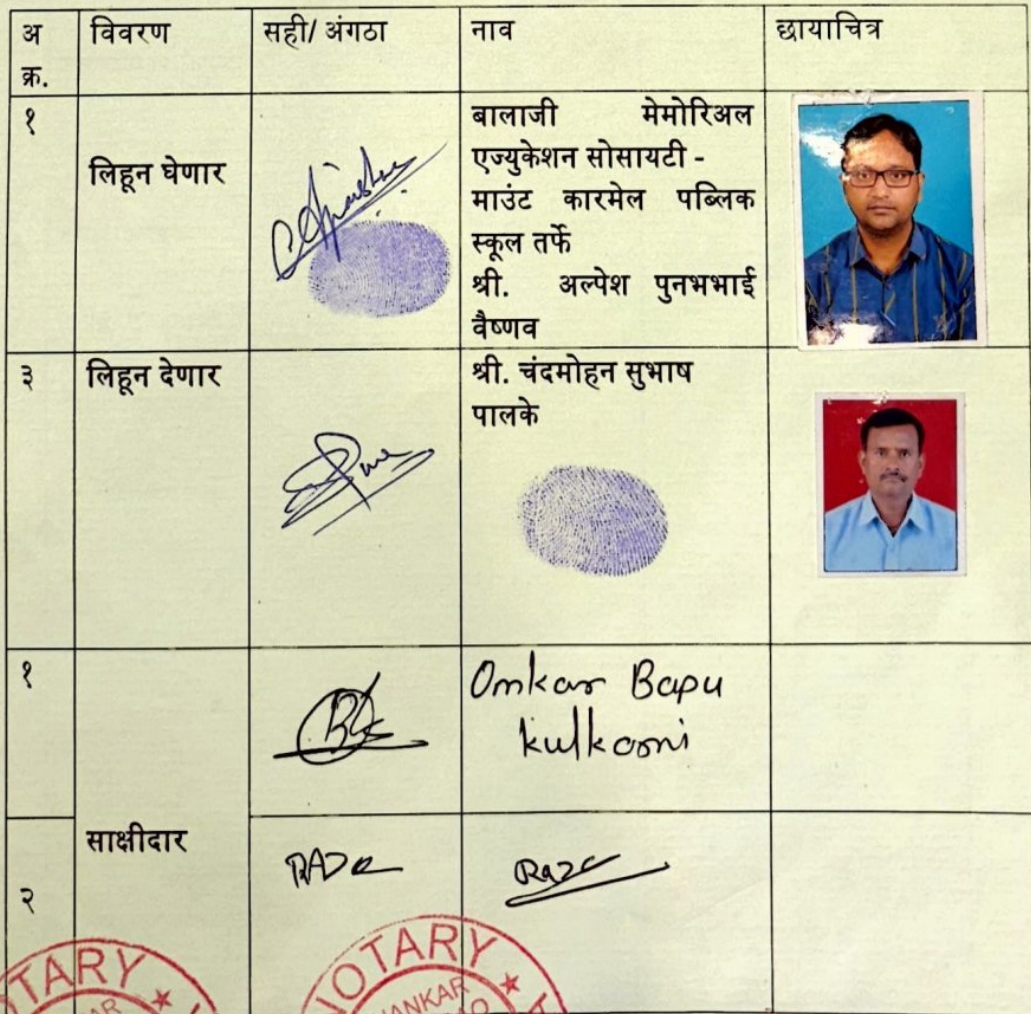 अ
क्र.
विवरण
सही/ अंगठा
नाव
छायाचित्र
१
लिहून घेणार
बालाजी मेमोरिअल
एज्युकेशन सोसायटी -
माउंट कारमेल पब्लिक
स्कूल तर्फे
श्री. अल्पेश पुनभभाई
वैष्णव
३
लिहून देणार
श्री. चंदमोहन सुभाष
पालके
१
Omkar Bapu
kulkarni
साक्षीदार
२
TARY
NOTARY